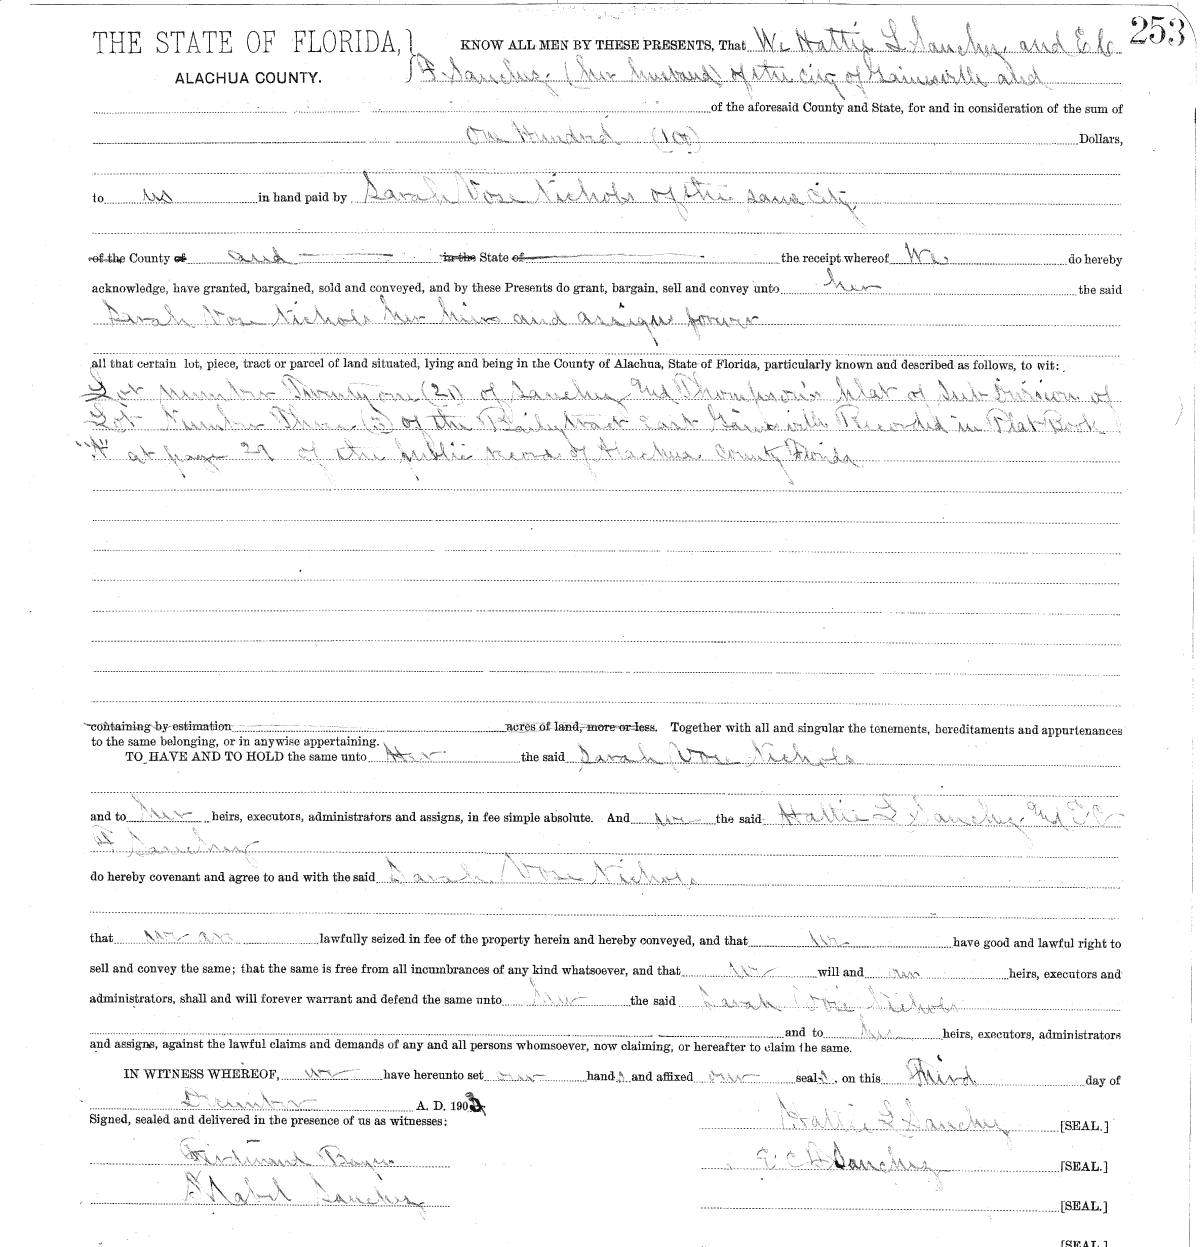 253
THE STATE OF FLORIDA, KNOW ALL MEN BY THESE PRESENTS, That We Hattie L Sanchez and E C
ALACHUA COUNTY. P. Sanchez (her husband) of the city of Gainesville and
of the aforesaid County and State, for and in consideration of the sum of
One Hundred (100) Dollars,
to us in hand paid by Sarah Vose Nichols of the same city
of the County of and in the State of the receipt whereof We do hereby
acknowledge, have granted, bargained, sold and conveyed, and by these Presents do grant, bargain, sell and convey unto her the said
Sarah Vose Nichols her heirs and assigns forever
all that certain lot, piece, tract or parcel of land situated, lying and being in the County of Alachua, State of Florida, particularly known and described as follows, to wit:
Lot number Twenty one (21) of Sanchez and Thompson's plat of Sub Division of
Lot Number Three (3) of the Baily tract East Gainesville Recorded in Plat Book
"A" at page 29 of the public record of Alachua County Florida
containing by estimation acres of land, more or less. Together with all and singular the tenements, hereditaments and appurtenances
to the same belonging, or in anywise appertaining.
TO HAVE AND TO HOLD the same unto Her the said Sarah Vose Nichols
and to her heirs, executors, administrators and assigns, in fee simple absolute. And we the said Hattie L Sanchez and E C
P. Sanchez
do hereby covenant and agree to and with the said Sarah Vose Nichols
that we are lawfully seized in fee of the property herein and hereby conveyed, and that we have good and lawful right to
sell and convey the same; that the same is free from all incumbrances of any kind whatsoever, and that we will and our heirs, executors and
administrators, shall and will forever warrant and defend the same unto her the said Sarah Vose Nichols
and to her heirs, executors, administrators
and assigns, against the lawful claims and demands of any and all persons whomsoever, now claiming, or hereafter to claim the same.
IN WITNESS WHEREOF, we have hereunto set our hands and affixed our seals, on this Third day of
December A. D. 190
Signed, sealed and delivered in the presence of us as witnesses: Hattie L Sanchez [SEAL.]
Ferdinand Bayer E C P Sanchez [SEAL.]
Mabel Sanchez [SEAL.]
[SEAL.]